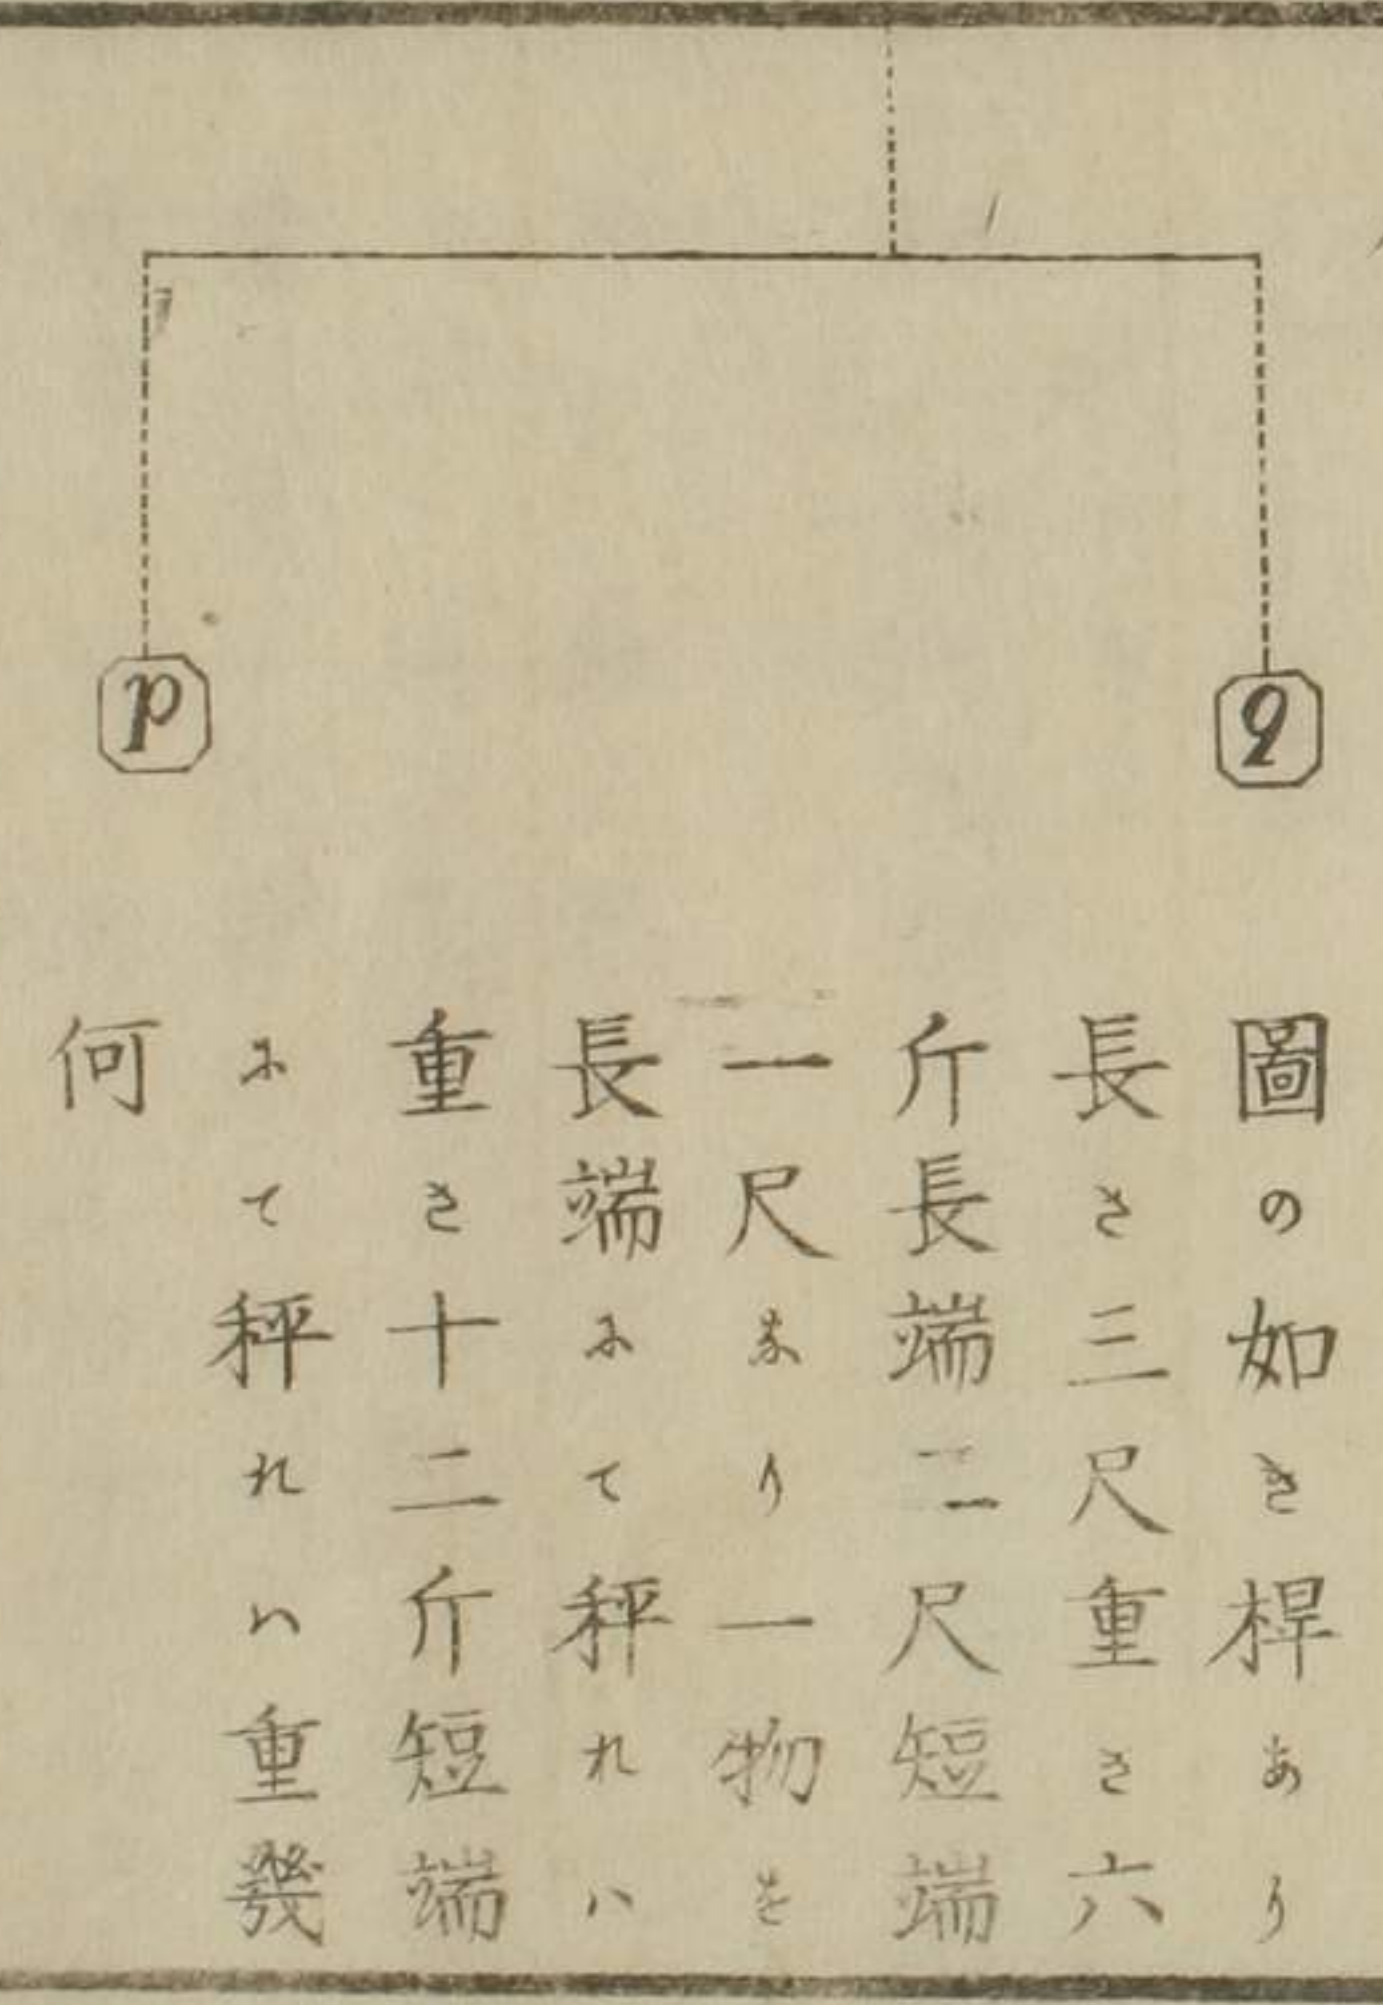 p
q
圖の如き桿あり
長さ三尺重さ六
斤長端二尺短端
一尺なり一物を
長端にて秤れハ
重き十二斤短端
にて秤れハ重幾
何